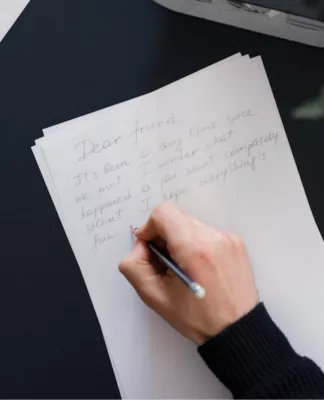 Dear friend,
It's been a long time since
we met I wonder what
happened as you went completely
silent I hope everything's
fine